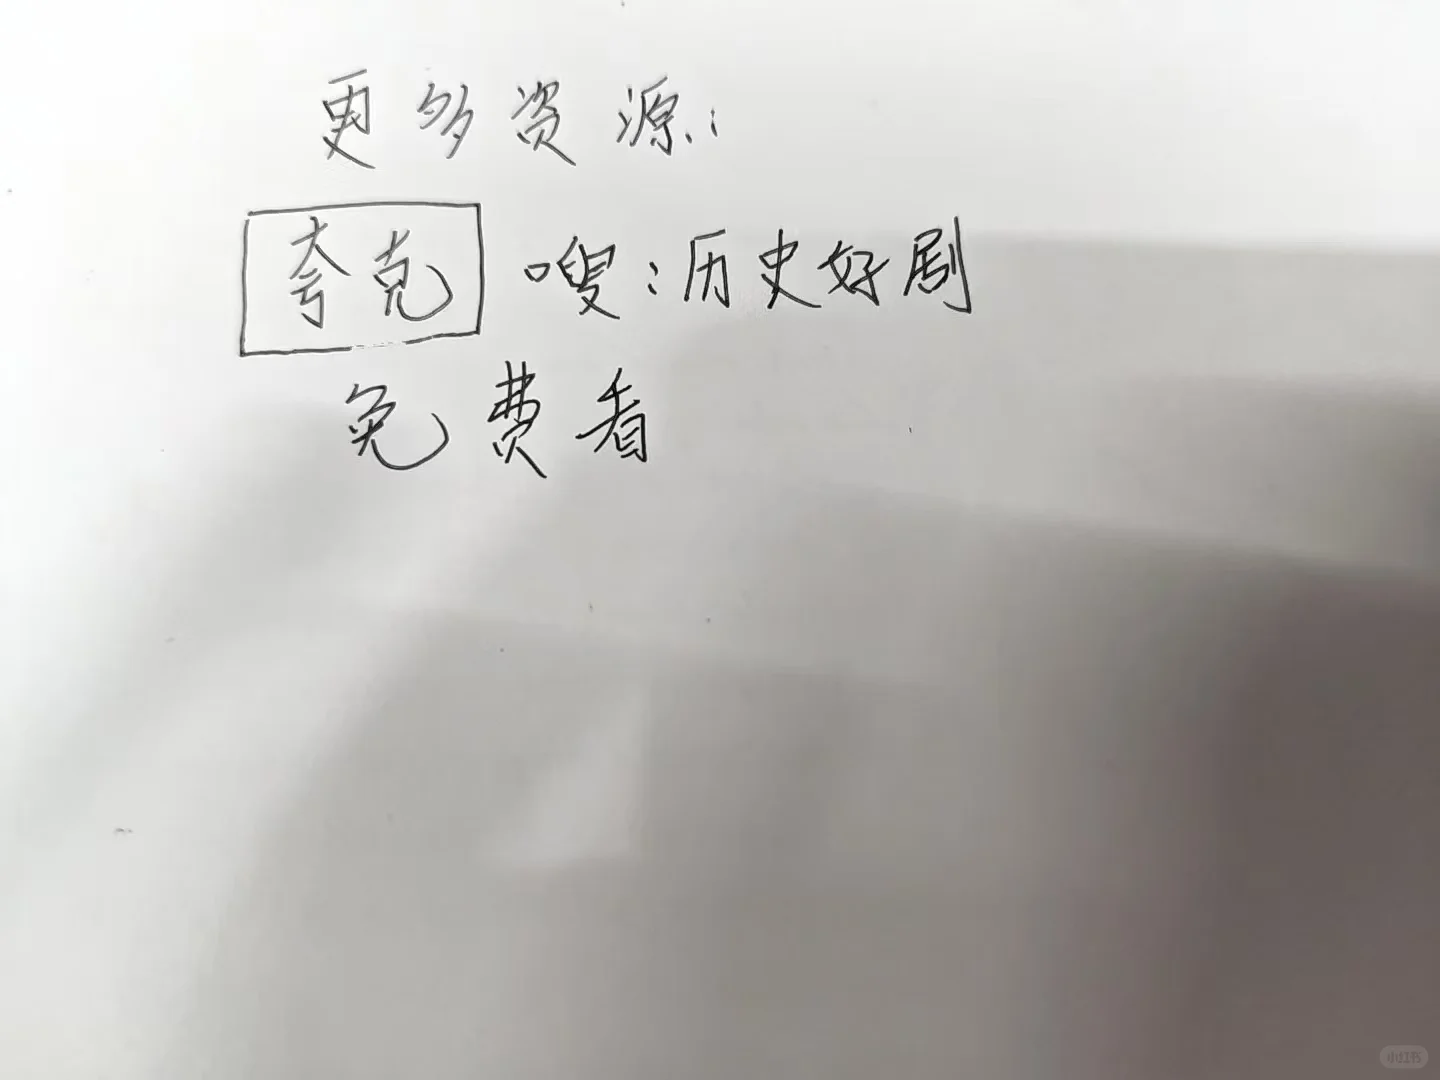 更多资源:
夸克 嗖:历史好剧
免费看
小红书